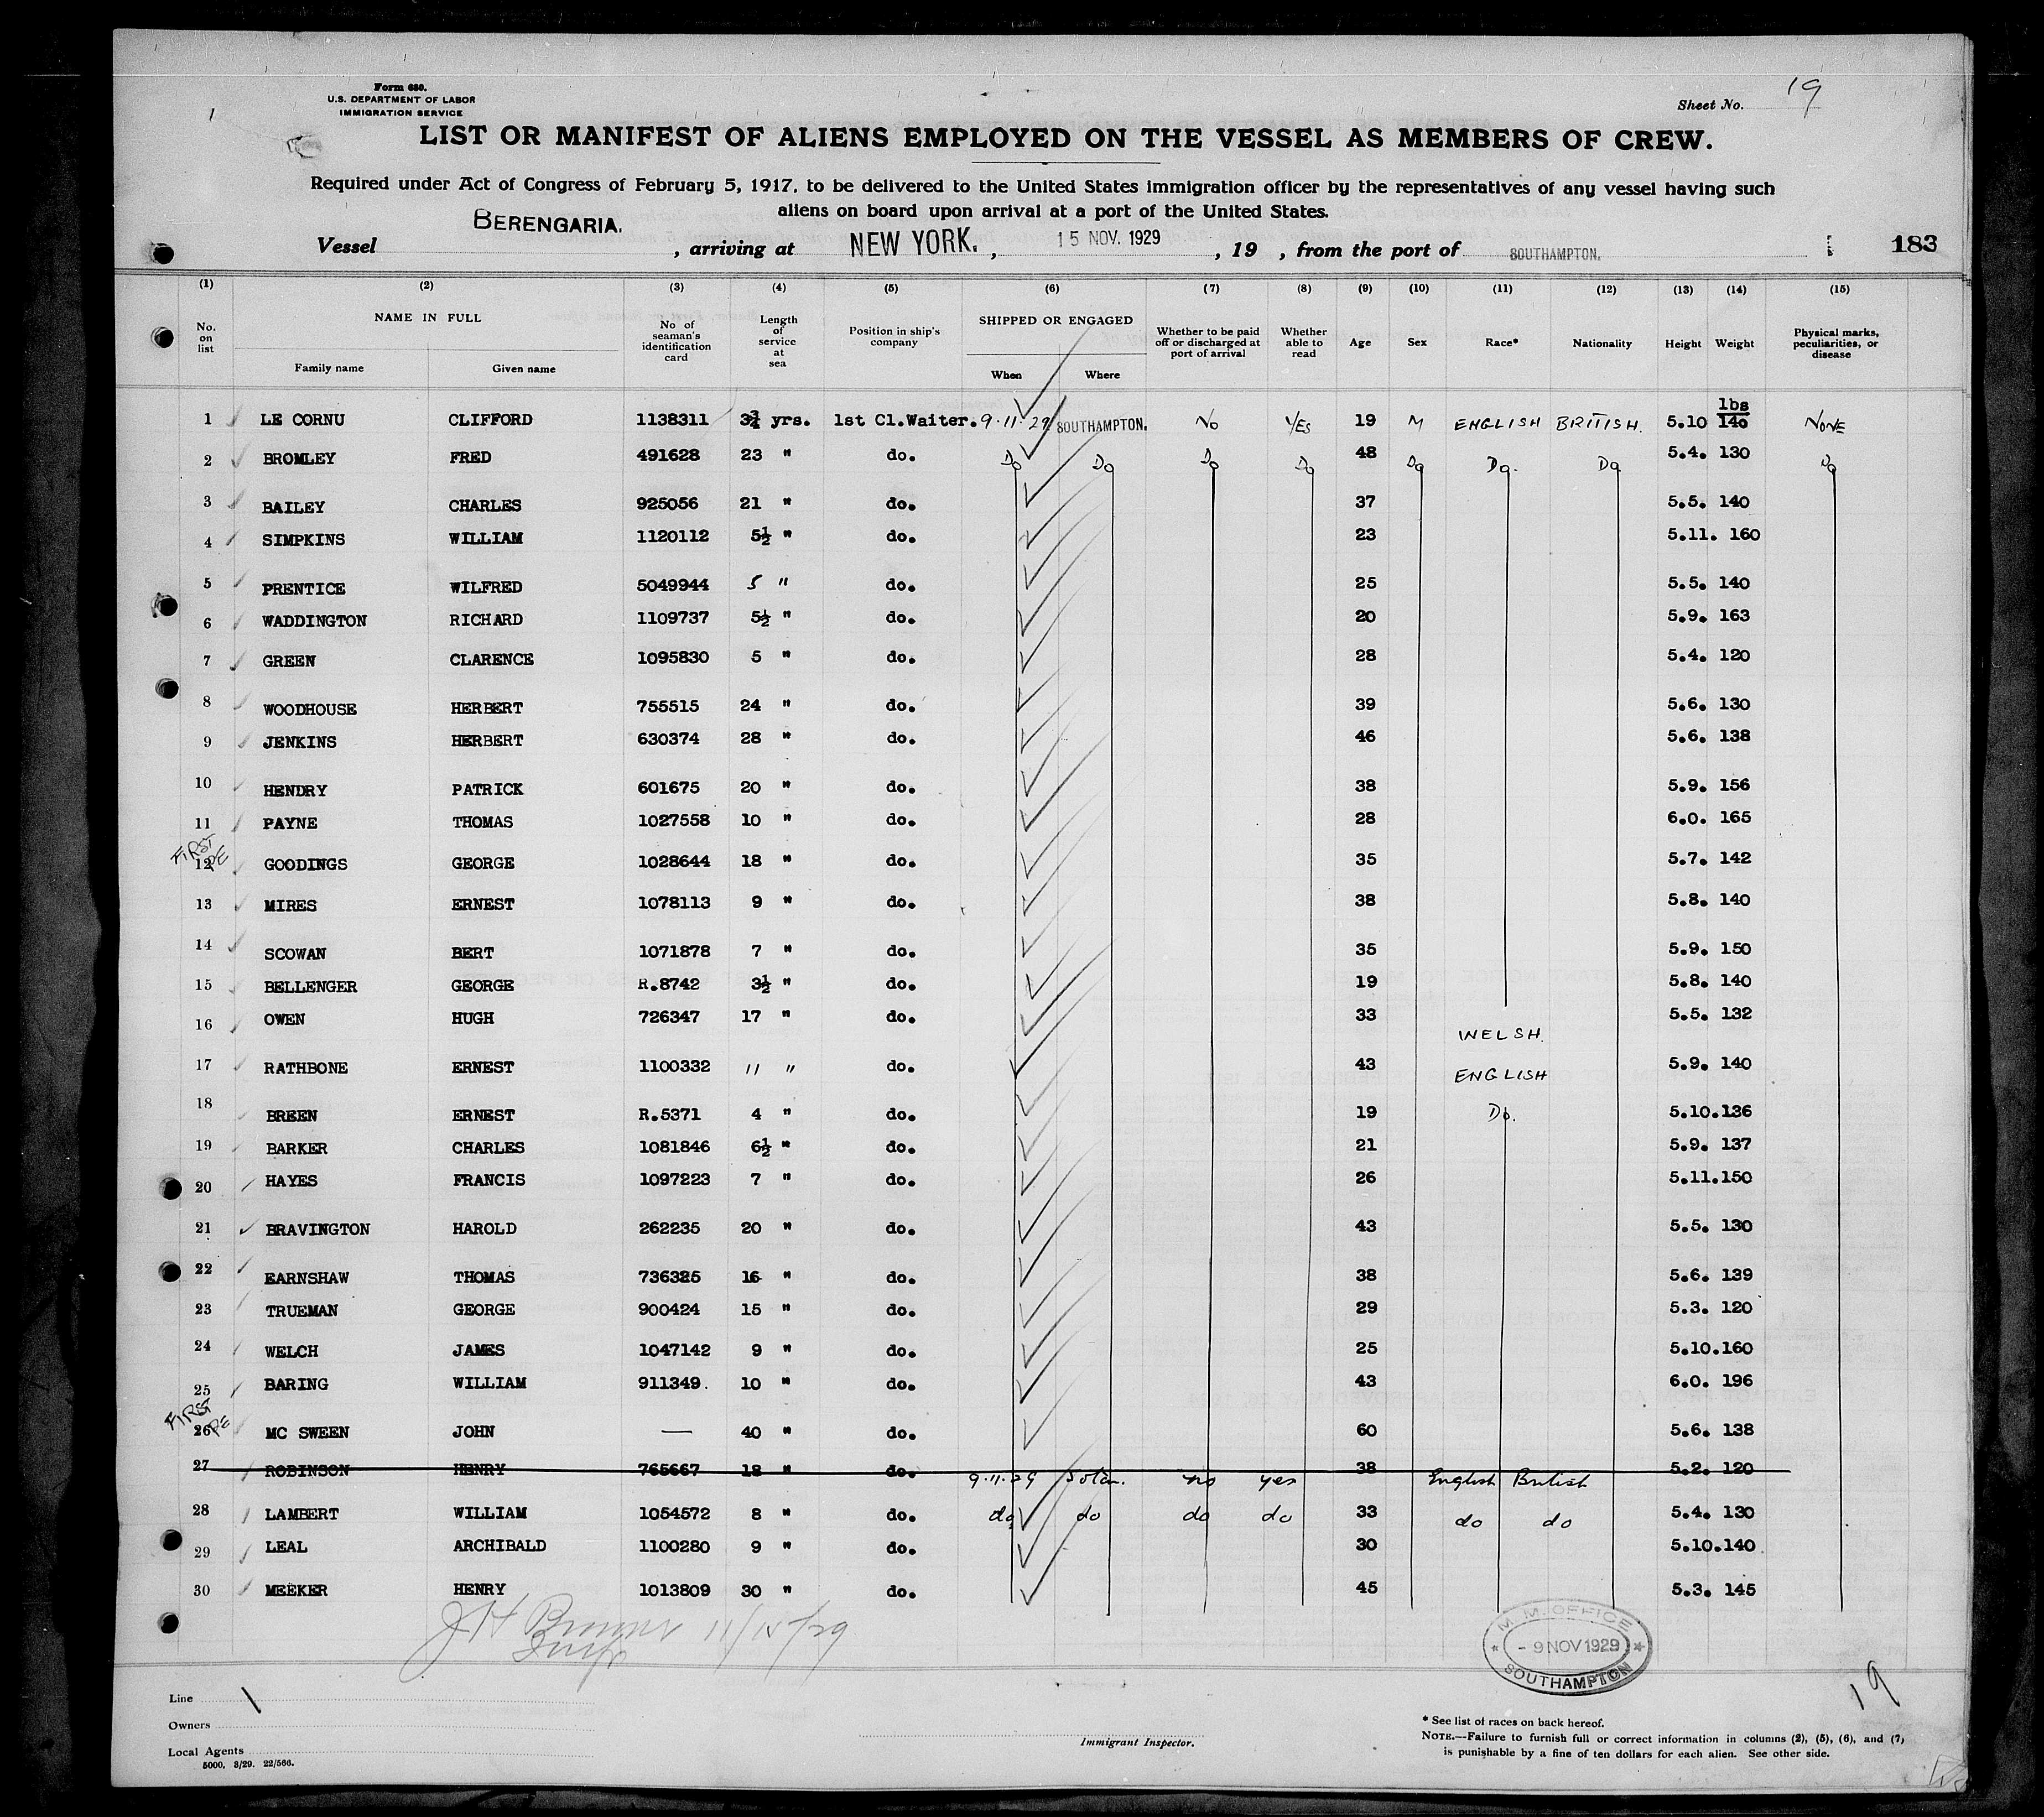 Form 680.
U.S. DEPARTMENT OF LABOR
IMMIGRATION SERVICE
Sheet No. 19
LIST OR MANIFEST OF ALIENS EMPLOYED ON THE VESSEL AS MEMBERS OF CREW.
Required under Act of Congress of February 5, 1917, to be delivered to the United States immigration officer by the representatives of any vessel having such
aliens on board upon arrival at a port of the United States.
Vessel BERENGARIA. , arriving at NEW YORK. , 15 NOV. 1929 , 19 , from the port of SOUTHAMPTON. 183
(1) (2) (3) (4) (5) (6) (7) (8) (9) (10) (11) (12) (13) (14) (15)
No. on list NAME IN FULL Family name Given name No. of seaman's identification card Length of service at sea Position in ship's company SHIPPED OR ENGAGED When Where Whether to be paid off or discharged at port of arrival Whether able to read Age Sex Race* Nationality Height Weight Physical marks, peculiarities, or disease
1 LE CORNU CLIFFORD 1138311 3¾ yrs. 1st Cl.Waiter. 9.11.29 SOUTHAMPTON. No YES 19 M ENGLISH BRITISH. 5.10 lbs 140 NONE
2 BROMLEY FRED 491628 23 " do. Do Do Do Do 48 Do Do. Do 5.4. 130 Do
3 BAILEY CHARLES 925056 21 " do. 37 5.5. 140
4 SIMPKINS WILLIAM 1120112 5½ " do. 23 5.11. 160
5 PRENTICE WILFRED 5049944 5 " do. 25 5.5. 140
6 WADDINGTON RICHARD 1109737 5½ " do. 20 5.9. 163
7 GREEN CLARENCE 1095830 5 " do. 28 5.4. 120
8 WOODHOUSE HERBERT 755515 24 " do. 39 5.6. 130
9 JENKINS HERBERT 630374 28 " do. 46 5.6. 138
10 HENDRY PATRICK 601675 20 " do. 38 5.9. 156
11 PAYNE THOMAS 1027558 10 " do. 28 6.0. 165
FIRST
12 GOODINGS GEORGE 1028644 18 " do. 35 5.7. 142
13 MIRES ERNEST 1078113 9 " do. 38 5.8. 140
14 SCOWAN BERT 1071878 7 " do. 35 5.9. 150
15 BELLENGER GEORGE R.8742 3½ " do. 19 5.8. 140
16 OWEN HUGH 726347 17 " do. 33 WELSH. 5.5. 132
17 RATHBONE ERNEST 1100332 11 " do. 43 ENGLISH 5.9. 140
18 BREEN ERNEST R.5371 4 " do. 19 Do. 5.10.136
19 BARKER CHARLES 1081846 6½ " do. 21 5.9. 137
20 HAYES FRANCIS 1097223 7 " do. 26 5.11.150
21 BRAVINGTON HAROLD 262235 20 " do. 43 5.5. 130
22 EARNSHAW THOMAS 736325 16 " do. 38 5.6. 139
23 TRUEMAN GEORGE 900424 15 " do. 29 5.3. 120
24 WELCH JAMES 1047142 9 " do. 25 5.10.160
25 BARING WILLIAM 911349. 10 " do. 43 6.0. 196
FIRST
26 MC SWEEN JOHN — 40 " do. 60 5.6. 138
27 ROBINSON HENRY 765667 18 " do. 9.11.29 Soton. no yes 38 English British 5.2. 120
28 LAMBERT WILLIAM 1054572 8 " do. do do do do 33 do do 5.4. 130
29 LEAL ARCHIBALD 1100280 9 " do. 30 5.10.140
30 MEEKER HENRY 1013809 30 " do. 45 5.3. 145
11/15/29
M. M. OFFICE
- 9 NOV 1929
SOUTHAMPTON
19
Line
Owners
Local Agents
5000. 3/29. 22/566.
Immigrant Inspector.
* See list of races on back hereof.
NOTE.—Failure to furnish full or correct information in columns (2), (5), (6), and (7)
is punishable by a fine of ten dollars for each alien. See other side.